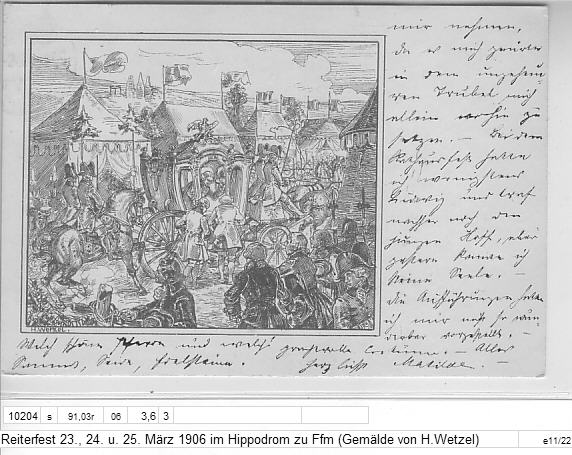 mir nehmen,
da es mich
in dem ungeheu-
ren Trubel mich
allein
setzen. — Bei dem
hatte
ich wenigstens
Ludwig und traf
nachher noch den
jungen Hoff, aber
gestern kannte ich
keine Seele. —
die Aufführungen habe
ich mir nicht so wun-
derbar vorgestellt. —
Welch schöne Pferde und welch' prachtvolle Costüme. — Alles
Sammt, Seide, Edelsteine. herzl. Mathilde. —
H. WETZEL.
10204 s 91,03r 06 3,6 3
Reiterfest 23., 24. u. 25. März 1906 im Hippodrom zu Ffm (Gemälde von H.Wetzel) e11/22